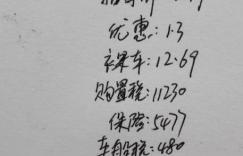 优惠:1.3
裸车:12.69
购置税:11230
保险:5477
车船税:480